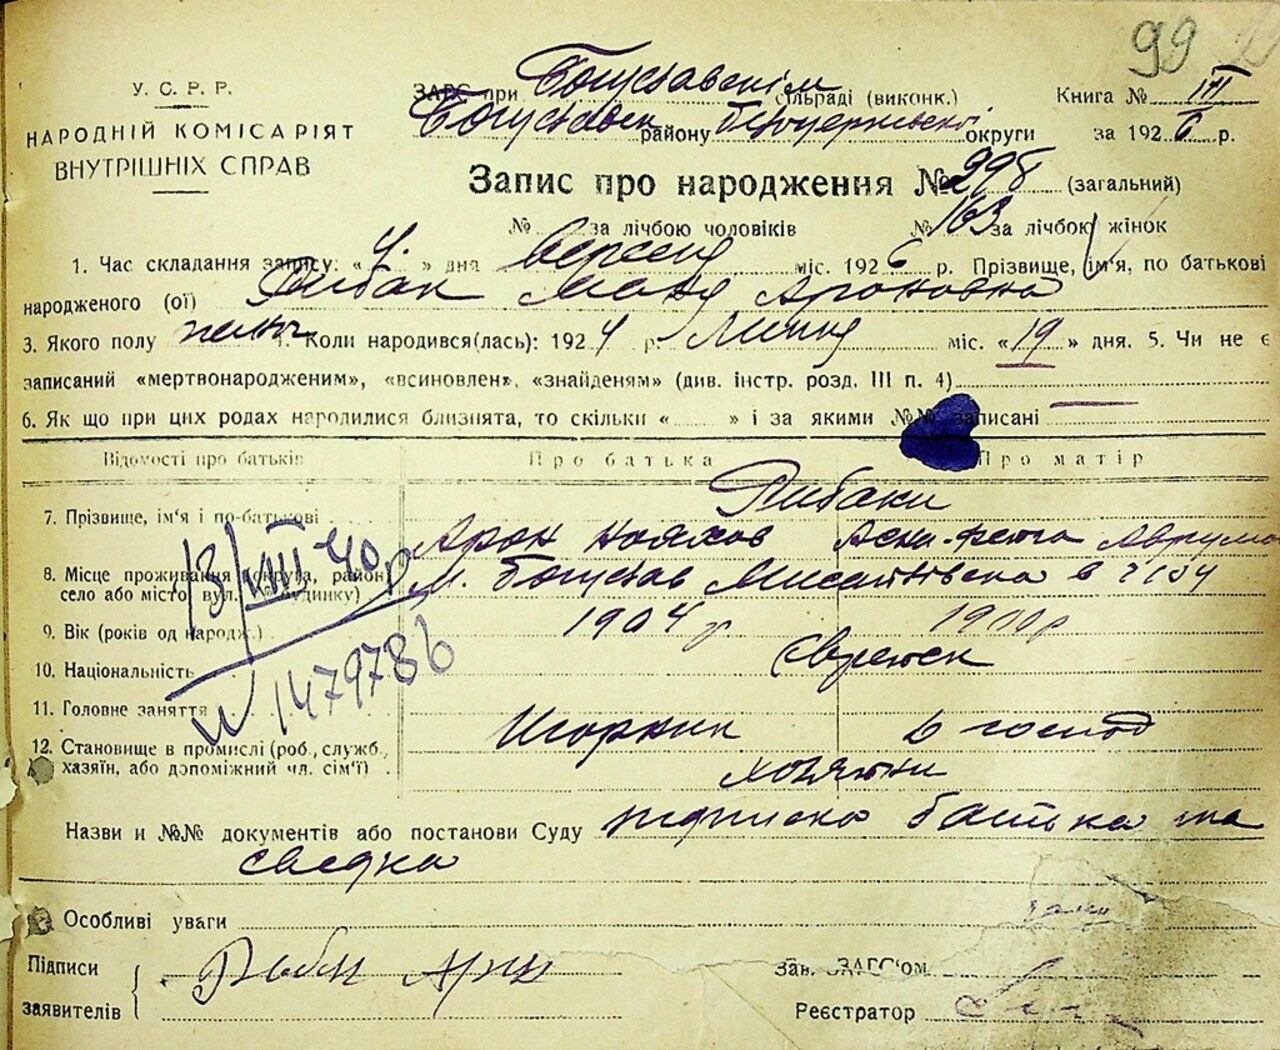 99
У. С. Р. Р.
НАРОДНІЙ КОМІСАРІЯТ
ВНУТРІШНІХ СПРАВ
ЗАГС при Богуславскім сільраді (виконк.) Книга № III
Богуславськ району Білоцерківської округи за 1926 р.
Запис про народження № 298 (загальний)
№ за лічбою чоловіків № 163 за лічбою жінок
1. Час складання запису: « 4 » дня вересня міс. 1926 р. Прізвище, ім'я, по батькові
народженого (ої) Рибак Маня Ароновна
3. Якого полу жіноч 4. Коли народився(лась): 1924 р. Липня міс. «19» дня. 5. Чи не є
записаний «мертвонародженим», «всиновлен», «знайденям» (див. інстр. розд. III п. 4)
6. Як що при цих родах народилися близнята, то скільки « » і за якими №№ записані
Відомості про батьків Про батька Про матір
Рибаки
7. Прізвище, ім'я і по-батькові Арон Аврумо
8. Місце проживання (округа, район, м. Богуслав в 4
село або місто, вул. № будинку)
13/VIII 40 р
9. Вік (років од народж.) 1904 р 1900 р
10. Національність Євреїск
№ 1479786
11. Головне заняття
12. Становище в промислі (роб., служб., в господ
хазяїн, або допоміжний чл. сім'ї)
Назви и №№ документів або постанови Суду підписка батька та
сведка
Особливі уваги
Підписи Рыбак Арон Зав. ЗАГС'ом
заявителів Реєстратор